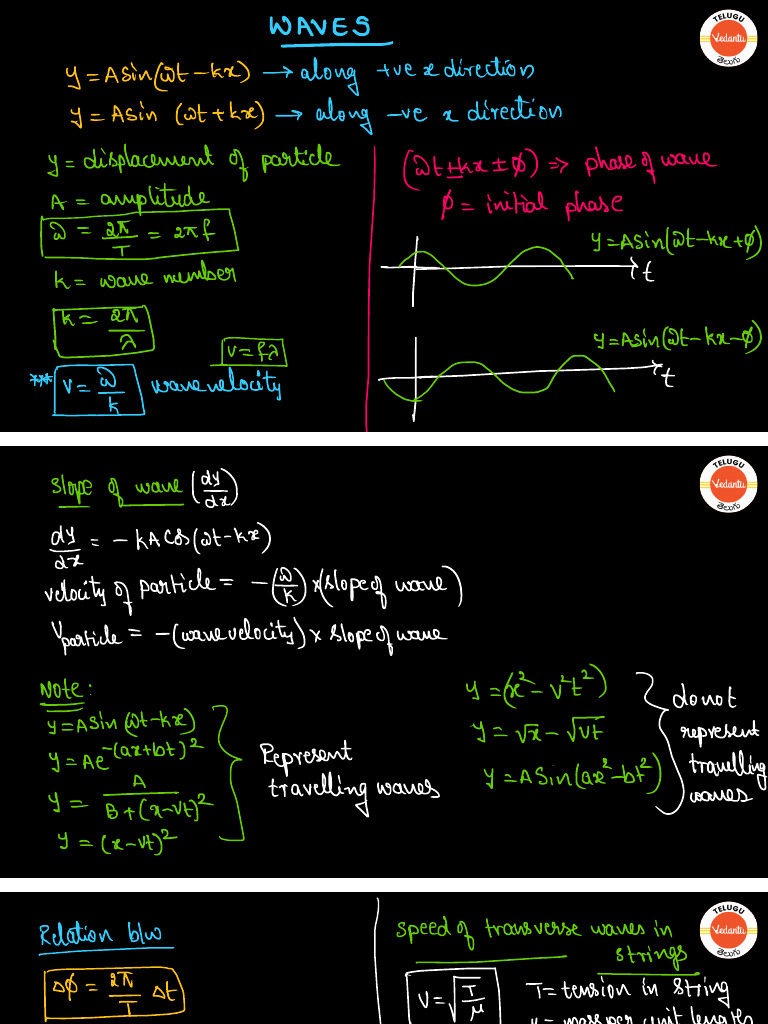 WAVES
TELUGU
Vedantu
తెలుగు
y = Asin(ωt - kx) → along +ve x direction
y = Asin (ωt + kx) → along -ve x direction
y = displacement of particle
A = amplitude
ω = 2π/T = 2πf
k = wave member
k = 2π/λ
v = fλ
** v = ω/k wave velocity
(ωt ± kx ± φ) ⇒ phase of wave
φ = initial phase
y = Asin(ωt - kx + φ)
t
y = Asin(ωt - kx - φ)
t
TELUGU
Vedantu
తెలుగు
Slope of wave (dy/dx)
dy/dx = - kA cos(ωt - kx)
velocity of particle = - (ω/k) × (slope of wave)
Vparticle = - (wave velocity) × slope of wave
Note:
y = A sin (ωt - kx)
y = Ae^-(ax+bt)^2
y = A / B + (x - vt)^2
y = (x - vt)^2
Represent
travelling waves
y = (x^2 - v^2t^2)
y = √x - √vt
y = A Sin(ax^2 - bt^2)
do not
represent
travelling
waves
TELUGU
Vedantu
తెలుగు
Relation b/w
Δφ = 2π/T Δt
Speed of transverse waves in
strings
V = √T/μ
T = tension in string
μ = mass per unit length